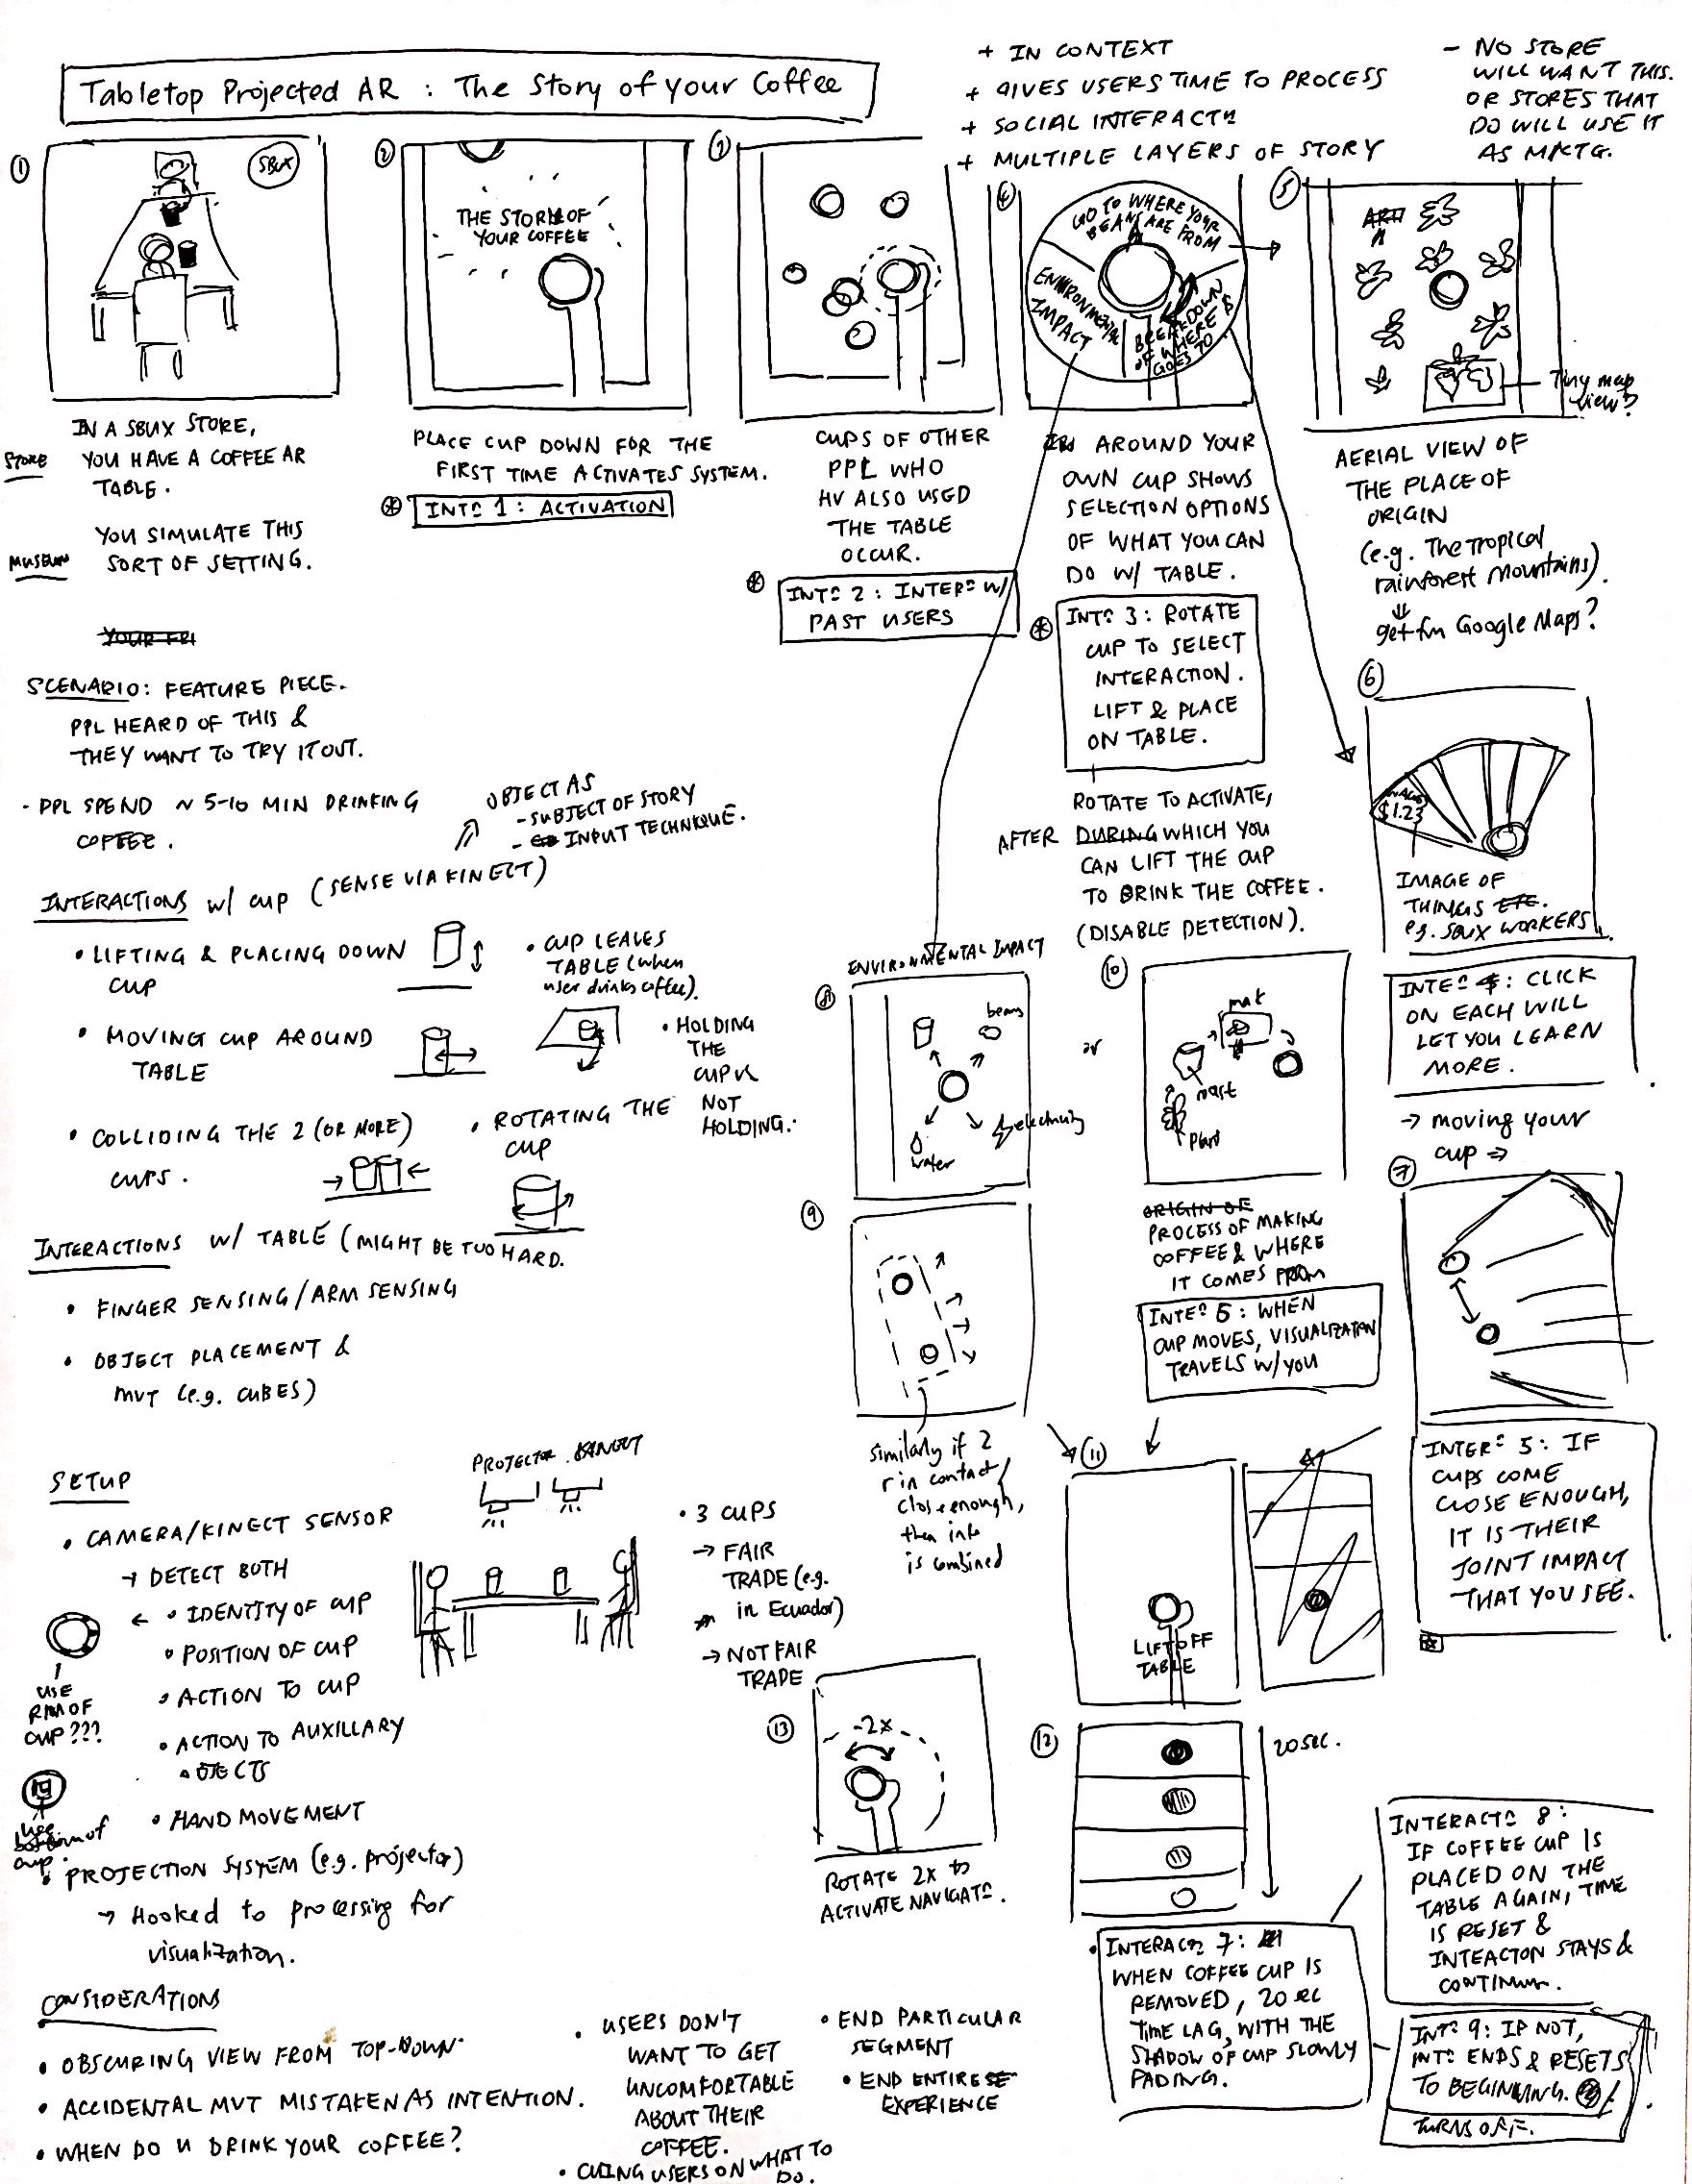 Tabletop Projected AR : The Story of your Coffee
+ IN CONTEXT
+ GIVES USERS TIME TO PROCESS
+ SOCIAL INTERACTN
+ MULTIPLE LAYERS OF STORY
- NO STORE
WILL WANT THIS.
OR STORES THAT
DO WILL USE IT
AS MKTG.
1
SBUX
IN A SBUX STORE,
STORE
YOU HAVE A COFFEE AR
TABLE.
MUSEUM
YOU SIMULATE THIS
SORT OF SETTING.
2
THE STORY OF
YOUR COFFEE
PLACE CUP DOWN FOR THE
FIRST TIME ACTIVATES SYSTEM.
INTN 1 : ACTIVATION
3
CUPS OF OTHER
PPL WHO
HV ALSO USED
THE TABLE
OCCUR.
INTN 2 : INTERN W/
PAST USERS
4
GO TO WHERE YOUR
BEANS ARE FROM
ENVIRONMENTAL
IMPACT
BREAKDOWN
OF WHERE $
GOES TO
AROUND YOUR
OWN CUP SHOWS
SELECTION OPTIONS
OF WHAT YOU CAN
DO W/ TABLE.
INTN 3 : ROTATE
CUP TO SELECT
INTERACTION.
LIFT & PLACE
ON TABLE.
ROTATE TO ACTIVATE,
AFTER DURING WHICH YOU
CAN LIFT THE CUP
TO DRINK THE COFFEE.
(DISABLE DETECTION).
5
Tiny map
view?
AERIAL VIEW OF
THE PLACE OF
ORIGIN
(e.g. The tropical
rainforest mountains).
get fm Google Maps?
6
WAGES
$1.23
IMAGE OF
THINGS ETC.
e.g. SBUX WORKERS
INTEN 4 : CLICK
ON EACH WILL
LET YOU LEARN
MORE.
→ moving your
cup ⇒
7
INTERN 5 : IF
CUPS COME
CLOSE ENOUGH,
IT IS THEIR
JOINT IMPACT
THAT YOU SEE.
YOUR FRI
SCENARIO : FEATURE PIECE.
PPL HEARD OF THIS &
THEY WANT TO TRY IT OUT.
- PPL SPEND ~ 5-10 MIN DRINKING
COFFEE.
OBJECT AS
- SUBJECT OF STORY
- INPUT TECHNIQUE.
INTERACTIONS w/ cup (SENSE VIA KINECT)
• LIFTING & PLACING DOWN
CUP
• CUP LEAVES
TABLE (when
user drinks coffee).
• MOVING CUP AROUND
TABLE
• HOLDING
THE
CUP VS
NOT
HOLDING.
• COLLIDING THE 2 (OR MORE)
CUPS.
• ROTATING THE
CUP
INTERACTIONS W/ TABLE (MIGHT BE TOO HARD.
• FINGER SENSING/ARM SENSING
• OBJECT PLACEMENT &
MVT (e.g. CUBES)
ENVIRONMENTAL IMPACT
8
beans
electricity
water
or
10
mak
roast
plant
ORIGIN OF
PROCESS OF MAKING
COFFEE & WHERE
IT COMES FROM
INTEN 6 : WHEN
CUP MOVES, VISUALIZATION
TRAVELS W/ YOU
9
similarly if 2
r in contact/
close enough,
then info
is combined
SETUP
• CAMERA/KINECT SENSOR
→ DETECT BOTH
← • IDENTITY OF CUP
• POSITION OF CUP
• ACTION TO CUP
• ACTION TO AUXILLARY
OBJECTS
• HAND MOVEMENT
USE
RIM OF
CUP???
use
bottom of
cup.
• PROJECTION SYSTEM (e.g. projector)
→ Hooked to processing for
visualization.
PROJECTOR
• 3 CUPS
→ FAIR
TRADE (e.g.
in Ecuador)
→ NOT FAIR
TRADE
11
LIFT OFF
TABLE
13
2x
ROTATE 2X to
ACTIVATE NAVIGATN.
12
20 SEC.
• INTERACN 7 :
WHEN COFFEE CUP IS
REMOVED, 20 sec
TIME LAG, WITH THE
SHADOW OF CUP SLOWLY
FADING.
INTERACTN 8 :
IF COFFEE CUP IS
PLACED ON THE
TABLE AGAIN, TIME
IS RESET &
INTEACTON STAYS &
CONTINUE.
INTN 9 : IF NOT,
INTN ENDS & RESETS
TO BEGINNING.
TURNS OFF.
CONSIDERATIONS
• OBSCURING VIEW FROM TOP-DOWN
• ACCIDENTAL MVT MISTAKEN AS INTENTION.
• WHEN DO U DRINK YOUR COFFEE?
• USERS DON'T
WANT TO GET
UNCOMFORTABLE
ABOUT THEIR
COFFEE.
• CUING USERS ON WHAT TO
DO.
• END PARTICULAR
SEGMENT
• END ENTIRE
EXPERIENCE